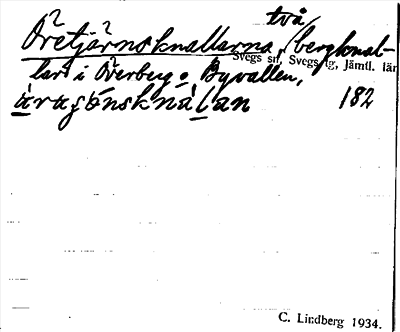 Öretjärnsknallarna, två bergknal-
Svegs sn, Svegs tg, Jämtl. län
lar i Överberg o. Byvallen,
182
C. Lindberg 1934.